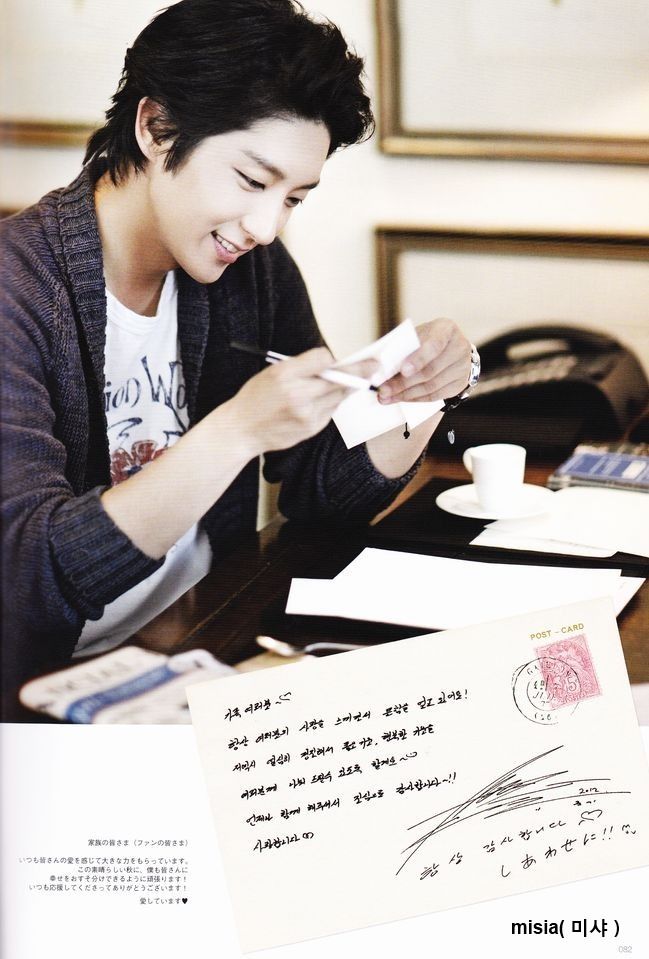 ion Wo
POST-CARD
가족 여러분~♡
항상 여러분의 사랑을 느끼면서 큰힘을 얻고 있어요!
저역시 열심히 정진해서 좋은 기운, 행복한 기운을
여러분께 나눠 드릴수 있도록 할게요~
언제나 함께 해주셔서 진심으로 감사합니다~!!
사랑합니다♡
2012
항상 감사합니다 ♡
しあわせに!!
家族の皆さま（ファンの皆さま）
いつも皆さんの愛を感じて大きな力をもらっています。
この素晴らしい秋に、僕も皆さんに
幸せをおすそ分けできるように頑張ります！
いつも応援してくださってありがとうございます！
愛しています♥
misia( 미샤 )
082